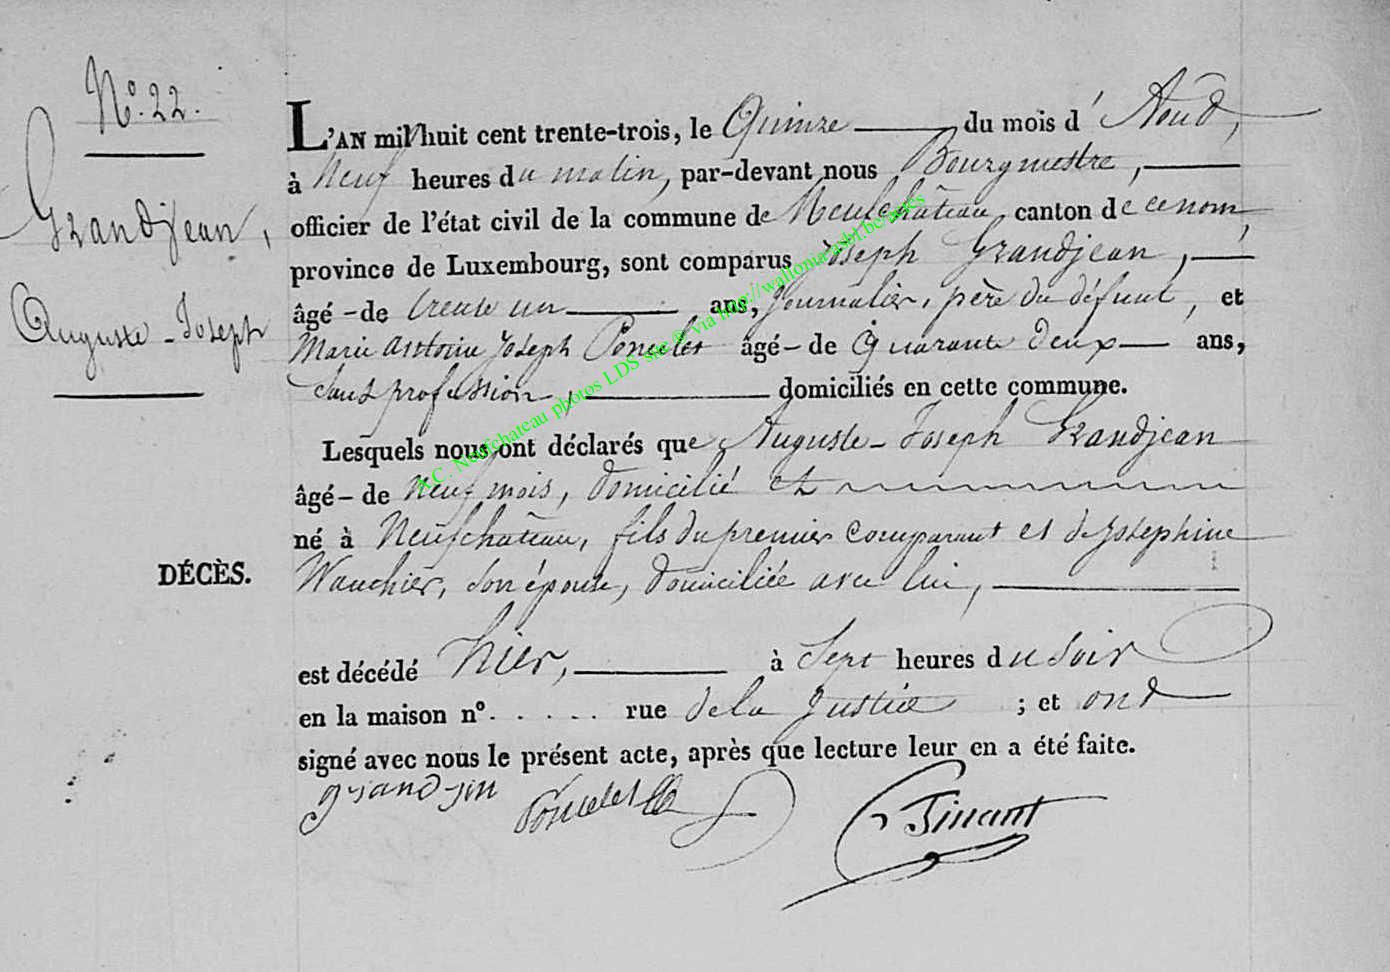 N.° 22.
Grandjean,
Auguste-Joseph
DÉCÈS.
L'AN mil huit cent trente-trois, le Quinze du mois d'Aoûd,
à Neuf heures du matin, par-devant nous Bourgmestre,
officier de l'état civil de la commune de Neufchâteau, canton de ce nom,
province de Luxembourg, sont comparus Joseph Grandjean,
âgé-de trente un ans, Journalier, père du défunt, et
Marie Antoine Joseph Poncelet âgé-de Quarante deux ans,
sans profession, domiciliés en cette commune.
Lesquels nous ont déclarés que Auguste-Joseph Grandjean
âgé-de neuf mois, domicilié et
né à Neufchâteau, fils du premier comparant et de Josephine
Wauthier, son épouse, domiciliée avec lui,
est décédé hier, à Sept heures du Soir
en la maison n°. . . . . . rue de la Justice ; et ont
signé avec nous le présent acte, après que lecture leur en a été faite.
grandjen Poncelet Tinant
A.C. Neufchateau photos LDS src © via http://wallonia-asbl.be/actes